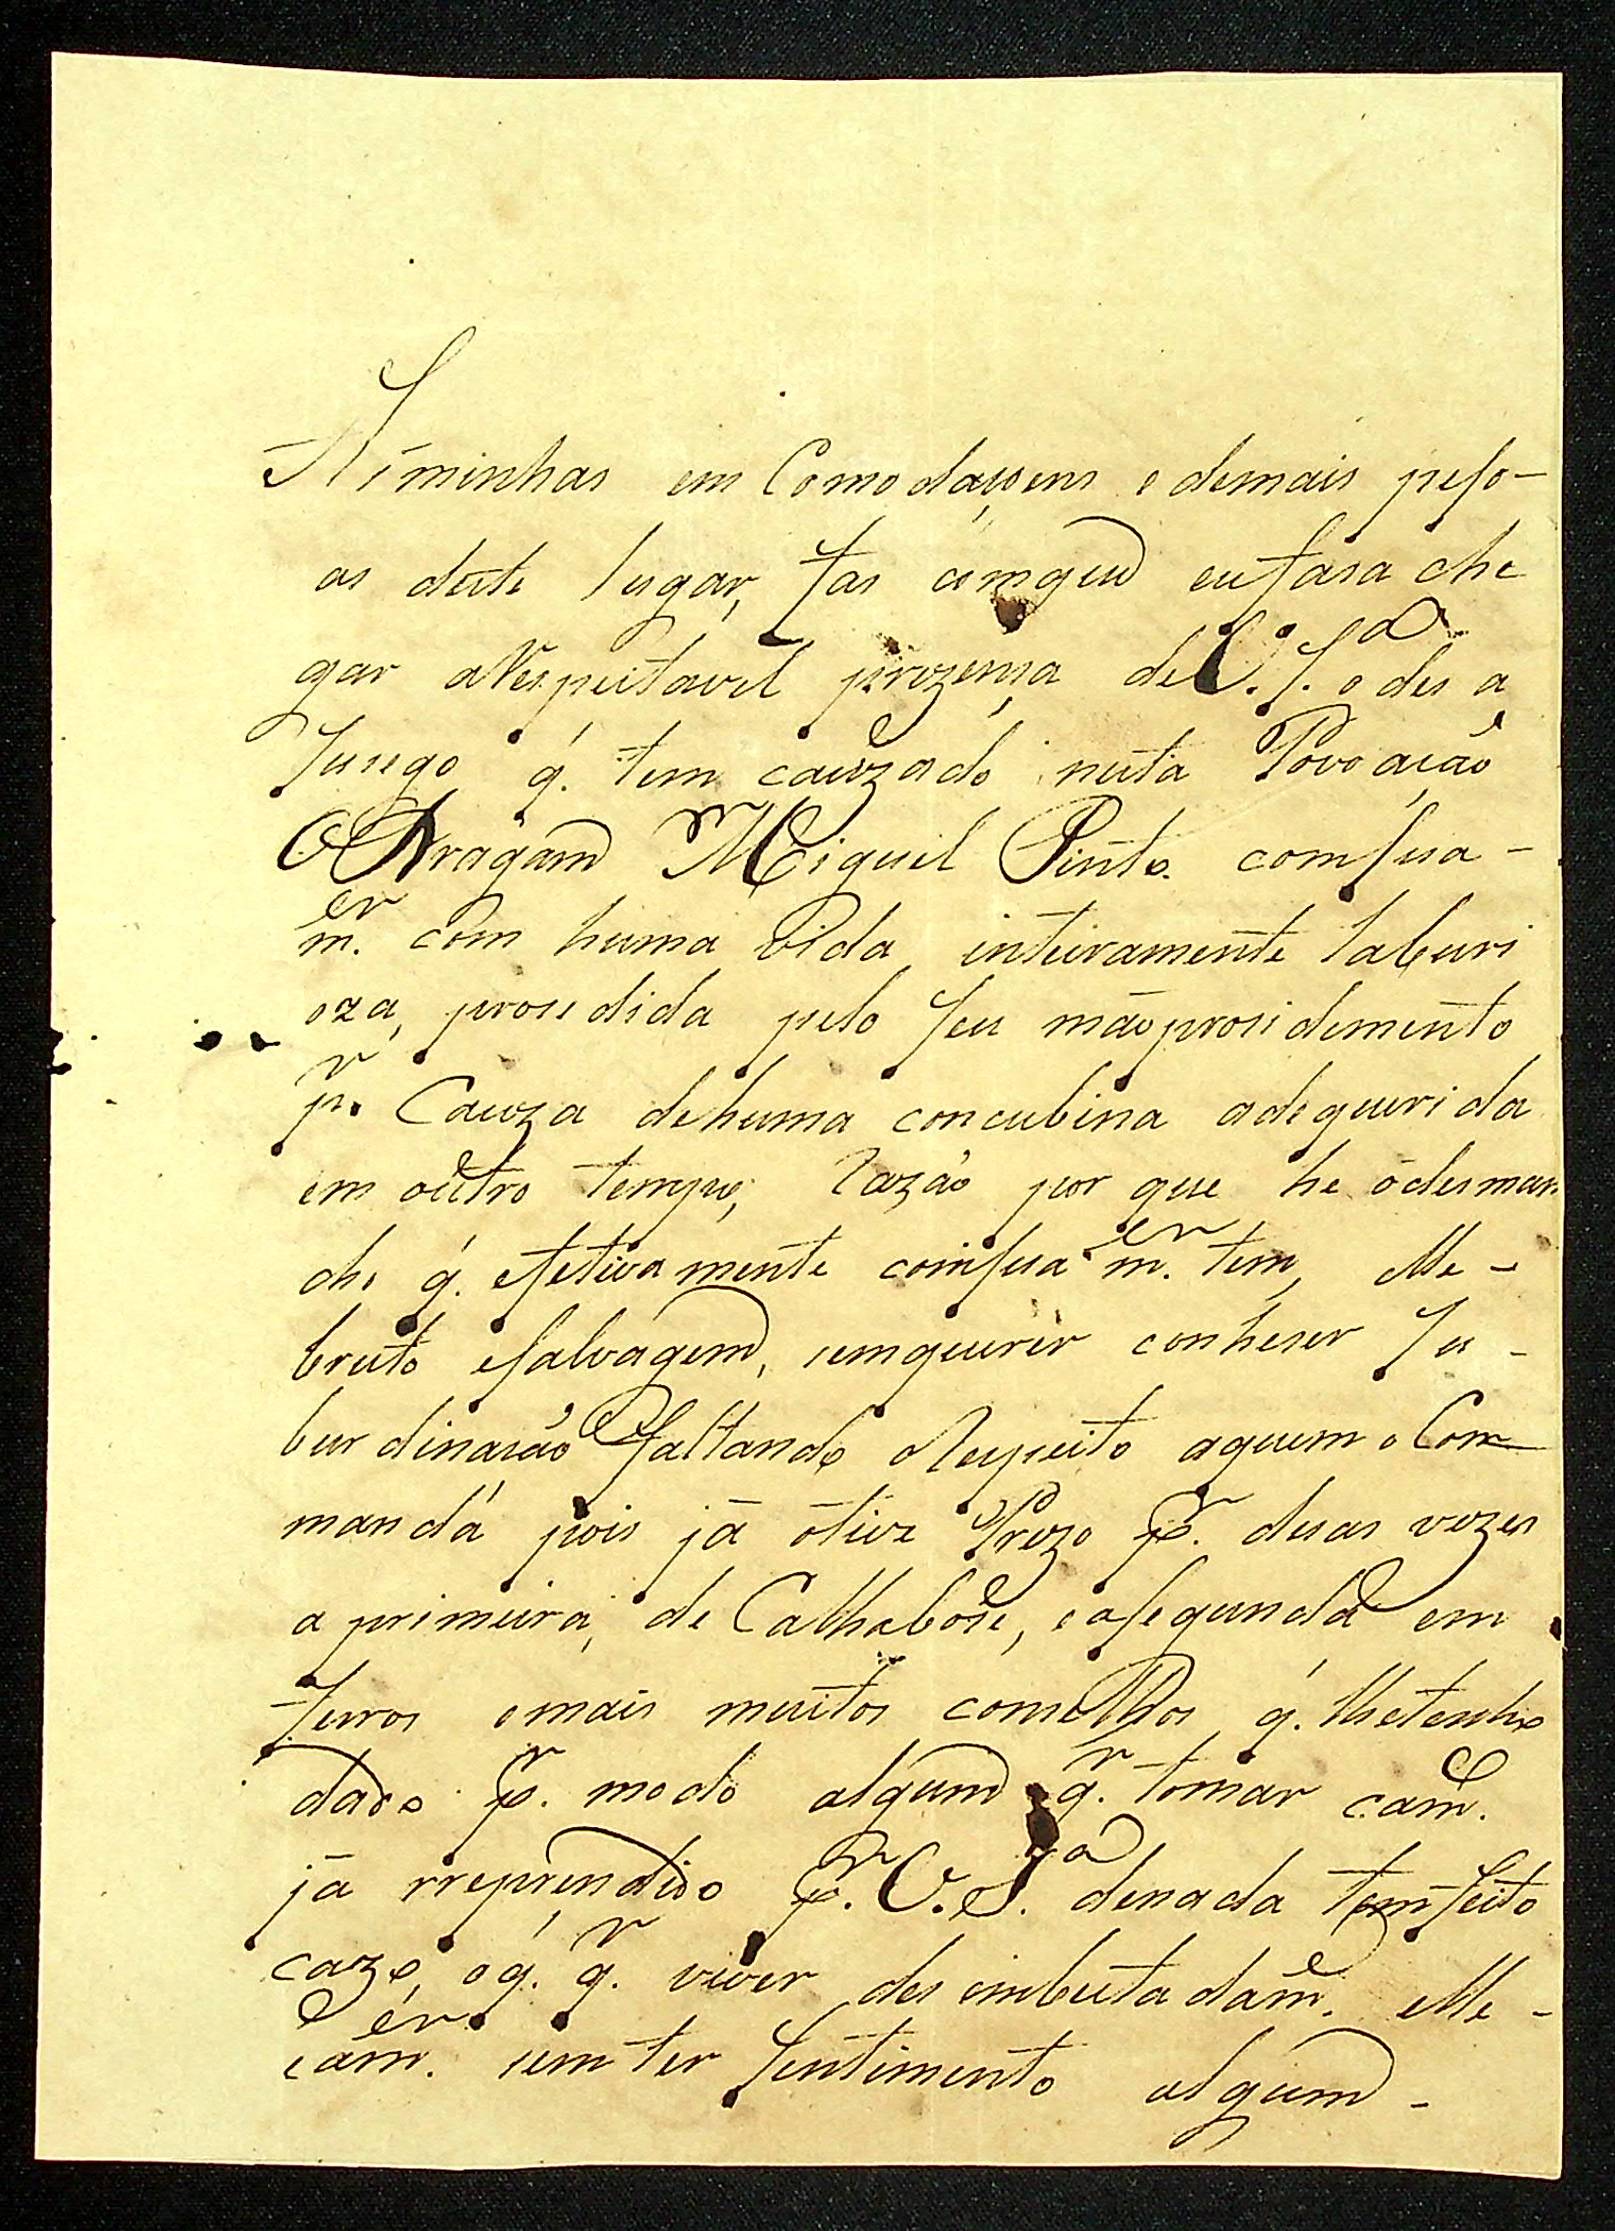 As minhas em Comodaçoens e demais peso-
as deste lugar, fas cõmque eu fasa che
gar aRespeitavel prezensa de V. S.ª o des a
Sucego q. tem cauzado nesta Povoacão
O Dragam Miguel Pinto. com sua-
m.er com huma vida inteiramente laburi
oza, prosedida pelo seu mão prosidemento
p.r Cauza dehuma concubina adequerida
em outro tempo, Razão por que he o desman
cho q. efetivamente com sua m.er tem, elle-
bruto e salvagem, sem querer conheser Su-
burdinasão e faltando o Respeito aquem o Com
manda pois já o tive Prezo p.r duas vezes
a primeira, de Calhaboso, e a segunda em
ferros e mais muitos conselhos q. lhe tenho
dado p.r modo algum q.r tomar cam.e
já rreprendido p.r V. S.ª de nada tem feito
cazo, o q. q.r viver des embuta dam.e elle-
e a m.er sem ter sentimento algum-